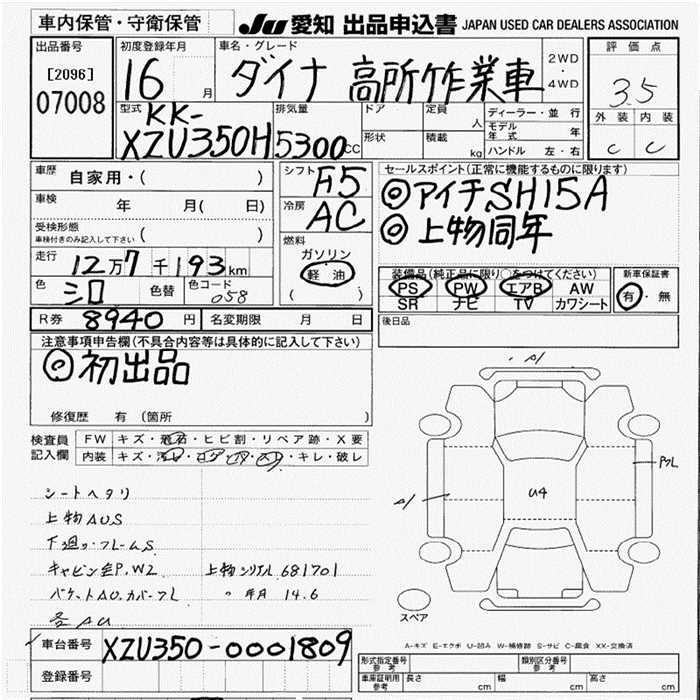 車内保管・守衛保管
JU 愛知 出品申込書 JAPAN USED CAR DEALERS ASSOCIATION
出品番号
[2096]
07008
初度登録年月
16 月
車名・グレード
ダイナ 高所作業車
2WD
・
4WD
評価点
3.5
外装 内装
C C
型式
KK-
XZU350H
排気量
5300 cc
ドア
定員
人
形状
積載
kg
ディーラー・並行
モデル年式 年
ハンドル 左・右
車歴
自家用・( )
車検 年 月( 日)
受検形態
車検付きのみ記入して下さい ( )
走行 12万7千193km
色 シロ 色替 色コード 058
シフト F5
冷房 AC
燃料
ガソリン
軽油
( )
セールスポイント(正常に機能するものに限ります)
◎アイチSH15A
◎上物同年
装備品(純正品に限り○をつけてください)
PS PW エアB AW
SR ナビ TV カワシート
新車保証書
有・無
R券 8940 円 名変期限 月 日
後日品
注意事項申告欄(不具合内容等は具体的に記入して下さい)
◎初出品
修復歴 有(箇所 )
検査員
記入欄
FW キズ・飛石・ヒビ割・リペア跡・X要
内装 キズ・ キレ・破レ
シートヘタリ
上物AUS
下廻り・フレームS
キャビン全P.W2 上物シリアル681701
バケットAU.カバーフL 〃 年月 14.6
各AU
A1
A1
U4
スペア
A-キズ E-エクボ U-凹み W-補修跡 S-サビ C-腐食 XX-交換済
車台番号 XZU350-0001809
登録番号
形式指定番号
参考
類別区分番号
参考
車庫証明用
参考
長さ cm 幅 cm 高さ cm